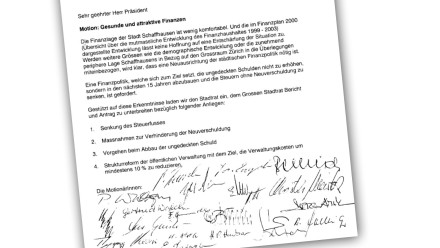 Sehr geehrter Herr Präsident
Motion: Gesunde und attraktive Finanzen
Die Finanzlage der Stadt Schaffhausen ist wenig komfortabel. Und die im Finanzplan 2000
(Übersicht über die mutmassliche Entwicklung des Finanzhaushaltes 1999 - 2003)
dargestellte Entwicklung lässt keine Hoffnung auf eine Entschärfung der Situation zu.
Werden weitere Grössen wie die demographische Entwicklung oder die zunehmend
periphere Lage Schaffhausens in Bezug auf den Grossraum Zürich in die Überlegungen
miteinbezogen, wird klar, dass eine Neuausrichtung der städtischen Finanzpolitik nötig ist.
Eine Finanzpolitik, welche sich zum Ziel setzt, die ungedeckten Schulden nicht zu erhöhen,
sondern in den nächsten 15 Jahren abzubauen und die Steuern ohne Neuverschuldung zu
senken, ist gefordert.
Gestützt auf diese Erkenntnisse laden wir den Stadtrat ein, dem Grossen Stadtrat Bericht
und Antrag zu unterbreiten bezüglich folgender Anliegen:
1. Senkung des Steuerfusses
2. Massnahmen zur Verhinderung der Neuverschuldung
3. Vorgehen beim Abbau der ungedeckten Schuld
4. Strukturreform der öffentlichen Verwaltung mit dem Ziel, die Verwaltungskosten um
mindestens 10 % zu reduzieren.
Die MotionärInnen: